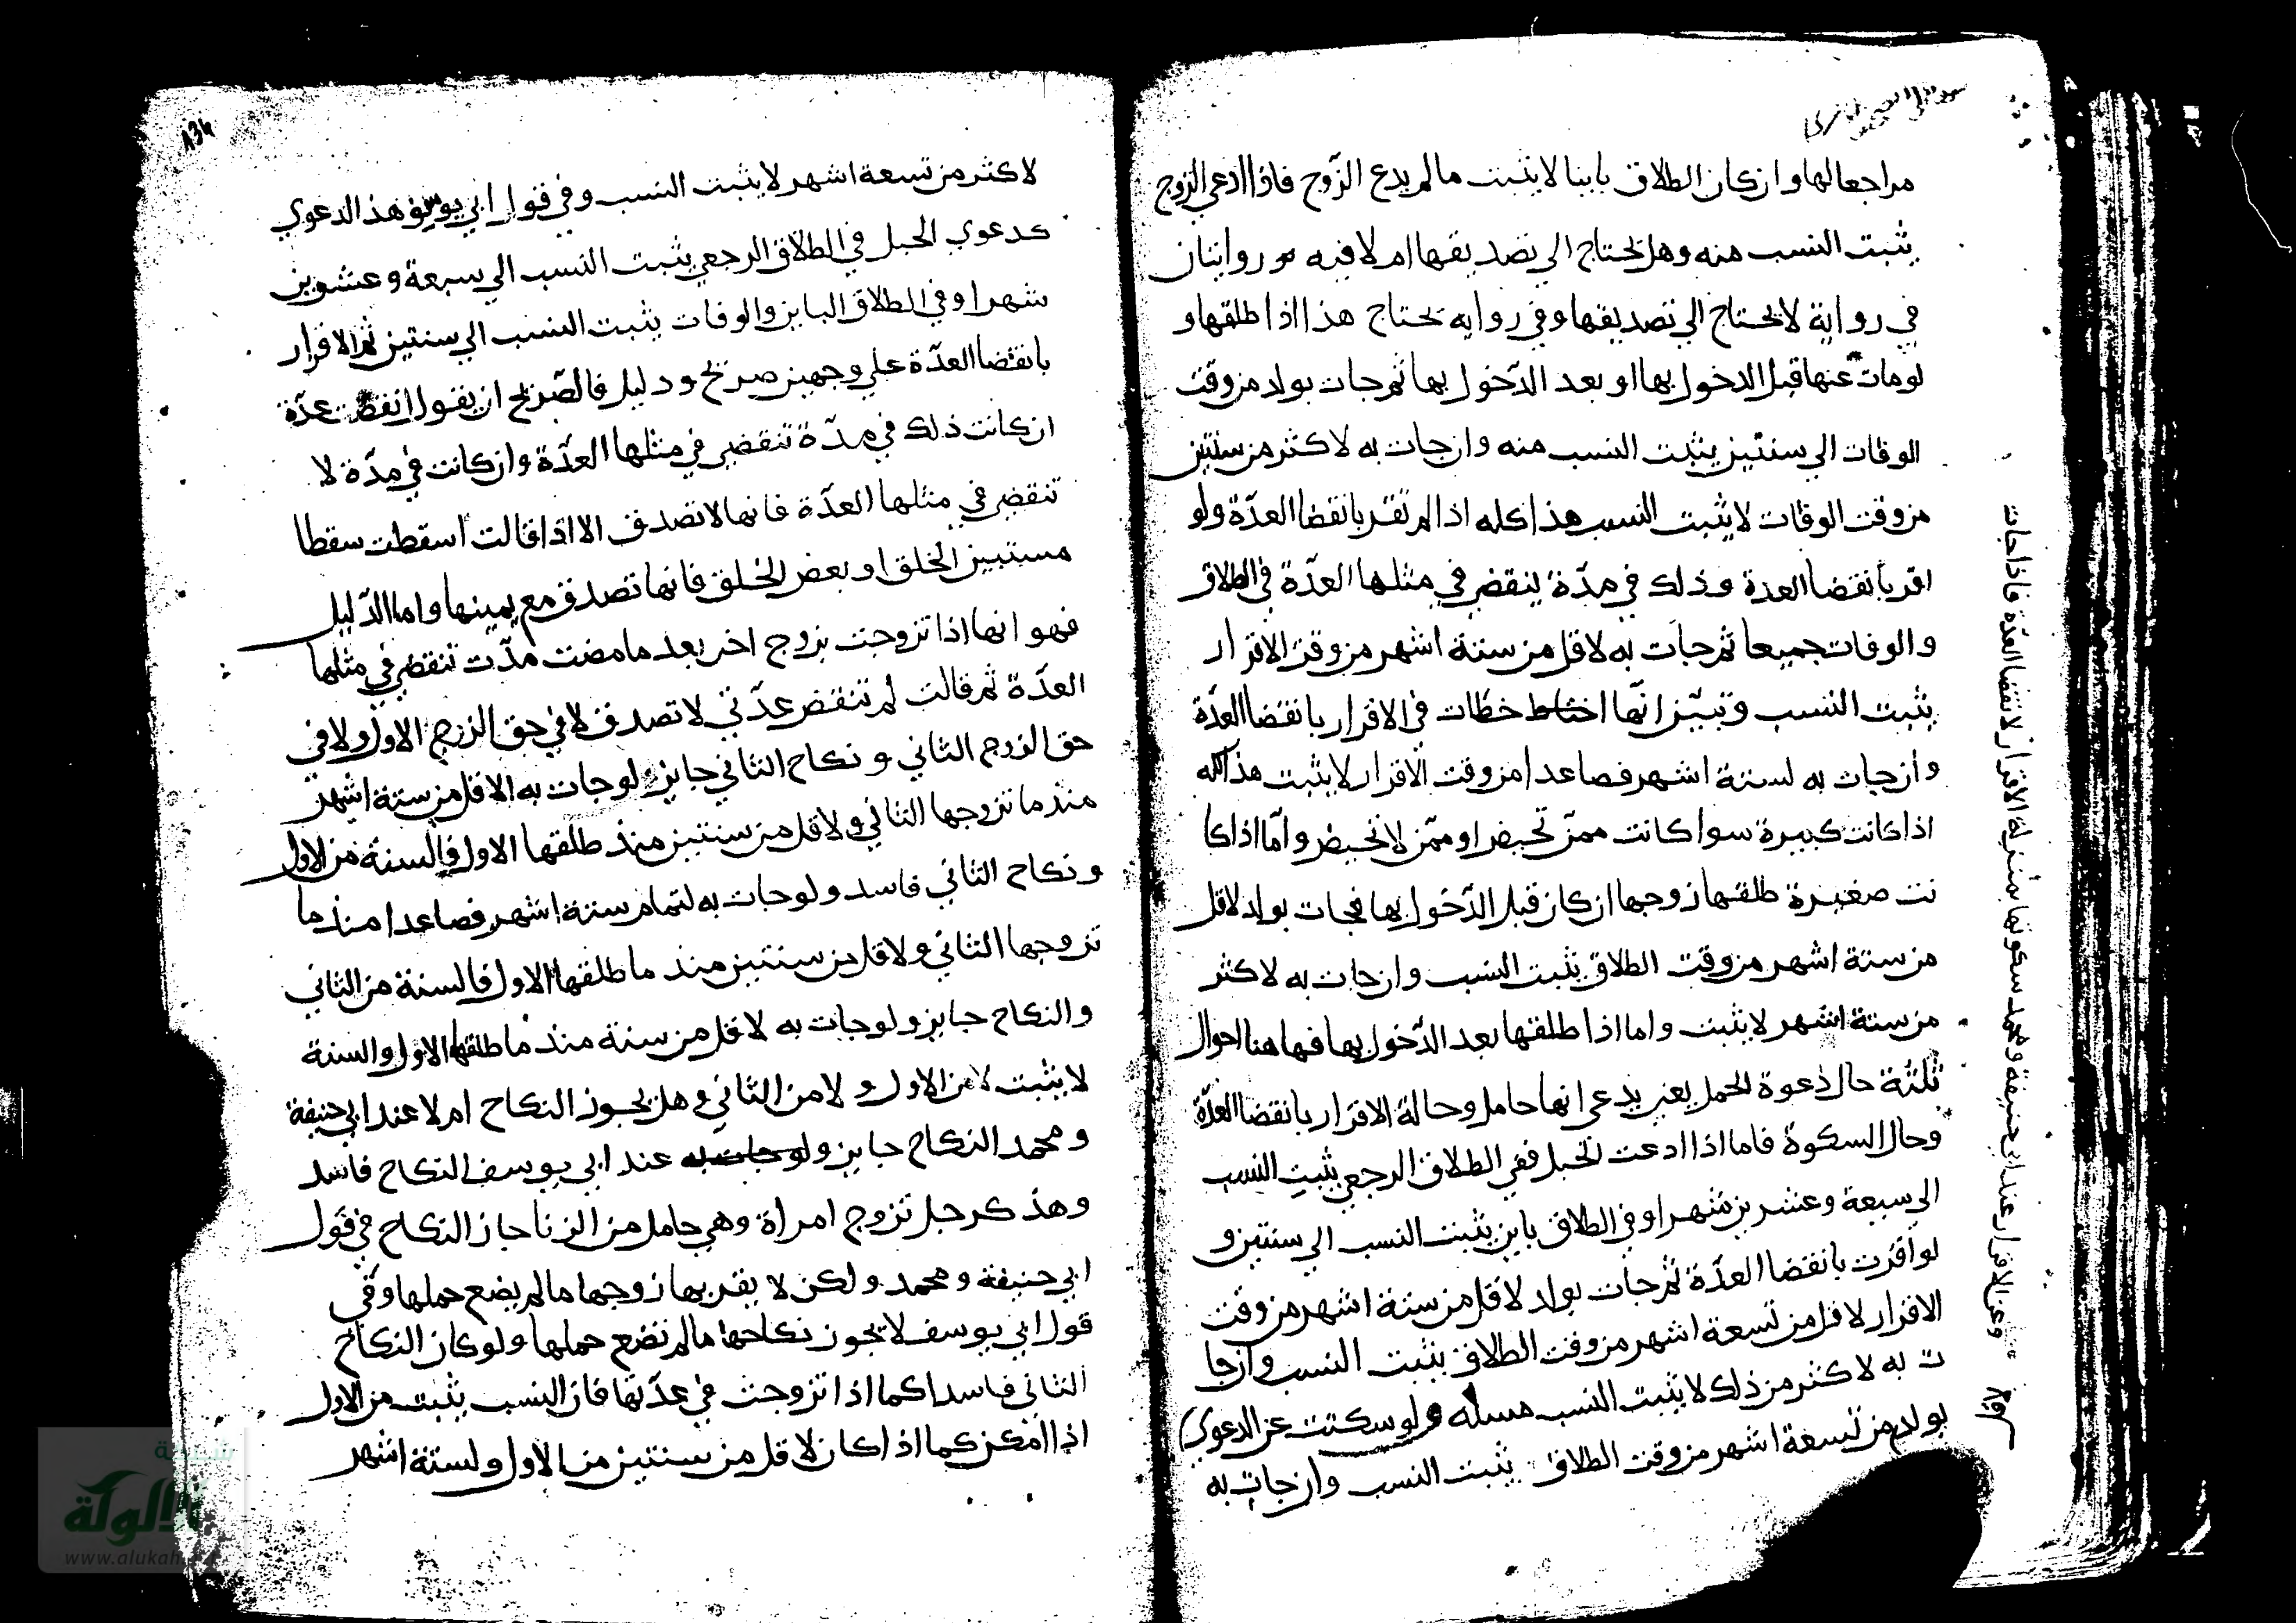 مراجعا لها وان كان الطلاق باينا لا يثبت ما لم يدع الزّوج فاذا ادعي الزوج
يثبت النسب منه وهل يحتاج الي تصديقها ام لا فيه روايتان
في رواية لا يحتاج الي تصديقها وفي روايه يحتاج هذا اذا طلقها و
لو مات عنها قبل الدخول بها او بعد الدّخول بها ثم جات بولد من وقت
الوفات الي سنتين يثبت النسب منه وان جات به لاكثر من سنتين
من وقت الوفات لا يثبت النسب هذا كله اذا لم تقر بانقضا العدّة ولو
اقر بانقضا العدة وذلك في مدّة ينقضي في مثلها العدّة في الطلاق
والوفات جميعا ثم جات به لاقل من ستة اشهر من وقت الاقرار
يثبت النسب وتبيّن انّها خطات في الاقرار بانقضا العدّة
وان جات به لستة اشهر فصاعدا من وقت الاقرار لا يثبت هذا كله
اذا كانت كبيرة سوا كانت ممن تحيض او ممّن لا تحيض وامّا اذا كا
نت صغيرة طلقها زوجها ان كان قبل الدّخول بها فجات بولد لاقل
من ستة اشهر من وقت الطلاق يثبت النسب وان جات به لاكثر
من ستة اشهر لا يثبت واما اذا طلقها بعد الدّخول بها فها هنا احوال
ثلثة حال دعوة الحمل يعني يدعي انها حامل وحالة الاقرار بانقضا العدّة
وحال السكوة فاما اذا ادعت الحبل ففي الطلاق الرجعي يثبت النسب
الي سبعة وعشرين شهرا وفي الطلاق باين يثبت النسب الي سنتين و
لو اقرت بانقضا العدّة ثم جات بولد لاقل من ستة اشهر من وقت
الاقرار لاقل من تسعة اشهر من وقت الطلاق يثبت النسب وان جا
ت به لاكثر من ذلك لا يثبت النسب مسله ولو سكتت عن الدعوي
بولد من تسعة اشهر من وقت الطلاق يثبت النسب وان جات به
وعن الاقرار عند ابي حنيفة ومحمد سكوتها بمنزلة الاقرار لانقضا العدّة فاذا جات
لاكثر من تسعة اشهر لا يثبت النسب وفي قول ابي يوسف هذا الدعوي
كدعوي الحبل في الطلاق الرجعي يثبت النسب الي سبعة وعشرين
شهرا وفي الطلاق الباين والوفات يثبت النسب الي سنتين ثم الاقرار
بانقضا العدّة علي وجهين صريح ودليل فالصّريح ان يقول انقضت عدّة
ان كانت ذلك في مدّة تنقضي في مثلها العدّة وان كانت في مدّة لا
تنقضي في مثلها العدّة فانها لا تصدق الا اذا قالت اسقطت سقطا
مستبين الخلق او بعض الخلق فانها تصدق مع يمينها واما الدّليل
فهو انها اذا تزوجت بزوج اخر بعد ما مضت مدّت تنقضي في مثلها
العدّة ثم قالت لم تنقض عدّتي لا تصدق لا في حق الزوج الاول ولا في
حق الزوج الثاني ونكاح الثاني جايز ولو جات به الاقل من ستة اشهر
منذ ما تزوجها الثاني ولاقل من سنتين منذ طلقها الاول فالسنة من الاول
ونكاح الثاني فاسد ولو جات به لتمام ستة اشهر فصاعدا منذ ما
تزوجها الثاني ولاقل من سنتين منذ ما طلقها الاول فالسنة من الثاني
والنكاح جايز ولو جات به لاقل من سنة منذ ما طلقها الاول والسنة
لا يثبت لا من الاول ولا من الثاني وهل يجوز النكاح ام لا عند ابي حنيفة
ومحمد النكاح جايز ولو جات به عند ابي يوسف النكاح فاسد
وهذ كرجل تزوج امراة وهي حامل من الزنا جاز النكاح في قول
ابي حنيفة ومحمد ولكن لا يقربها زوجها ما لم يضع حملها وفي
قول ابي يوسف لا يجوز نكاحها ما لم تضع حملها ولو كان النكاح
الثاني فاسدا كما اذا تزوجت في عدّتها فان النسب يثبت من الاول
اذا امكن كما اذا كان لاقل من سنتين من الاول ولستة اشهر